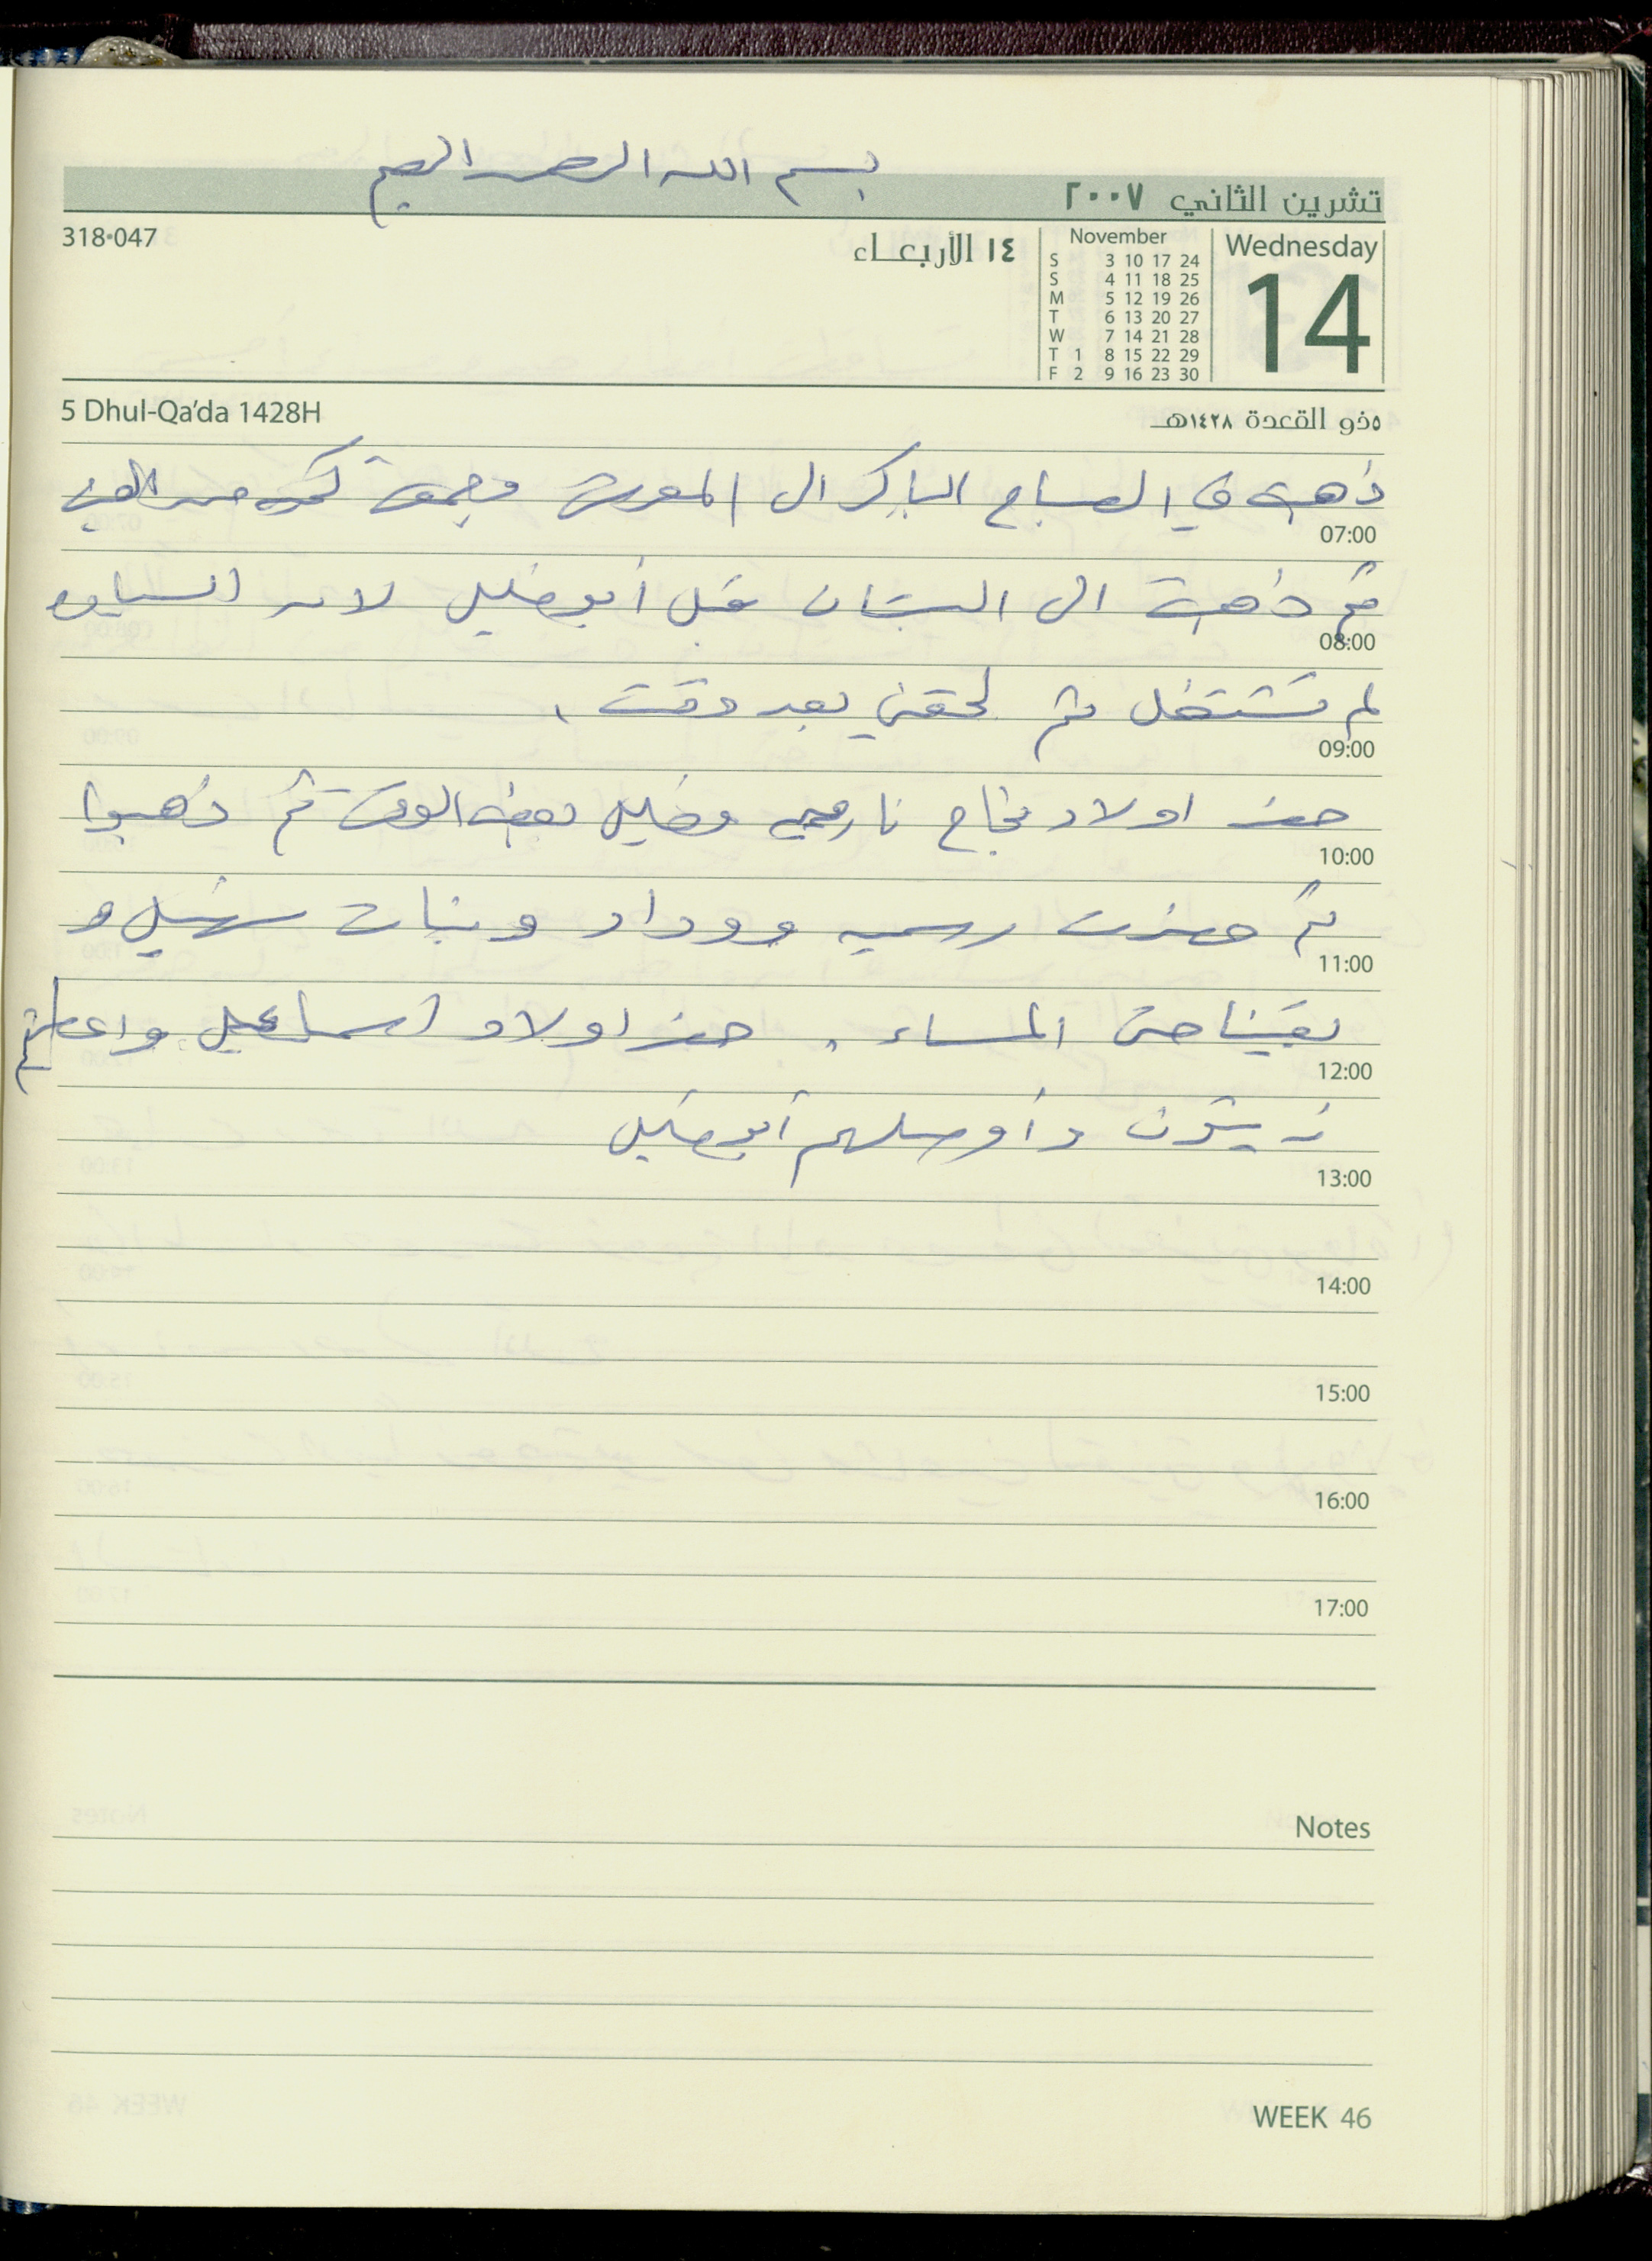 بسم الله الرحمن الرحيم
تشرين الثاني ٢٠٠٧
318·047
١٤ الأربعاء
November
S 3 10 17 24
S 4 11 18 25
M 5 12 19 26
T 6 13 20 27
W 7 14 21 28
T 1 8 15 22 29
F 2 9 16 23 30
Wednesday
14
5 Dhul-Qa'da 1428H
٥ ذو القعدة ١٤٢٨هـ
ذهبت في الصباح الباكر الى وجمعت كمية من
07:00
ثم ذهبت الى البستان قبل أبو خليل لان السيارة
08:00
لم تشتغل ثم لحقني بعد وقت .
09:00
حضر اولاد نجاح وخليل بعض الوقت ثم ذهبوا
10:00
ثم حضرت رسميه ووداد وبنات سهيل و
11:00
بقينا حتى المساء . حضر اولاد اسماعيل واعطيتهم
12:00
زيتون وأوصلهم أبو خليل
13:00
14:00
15:00
16:00
17:00
Notes
WEEK 46